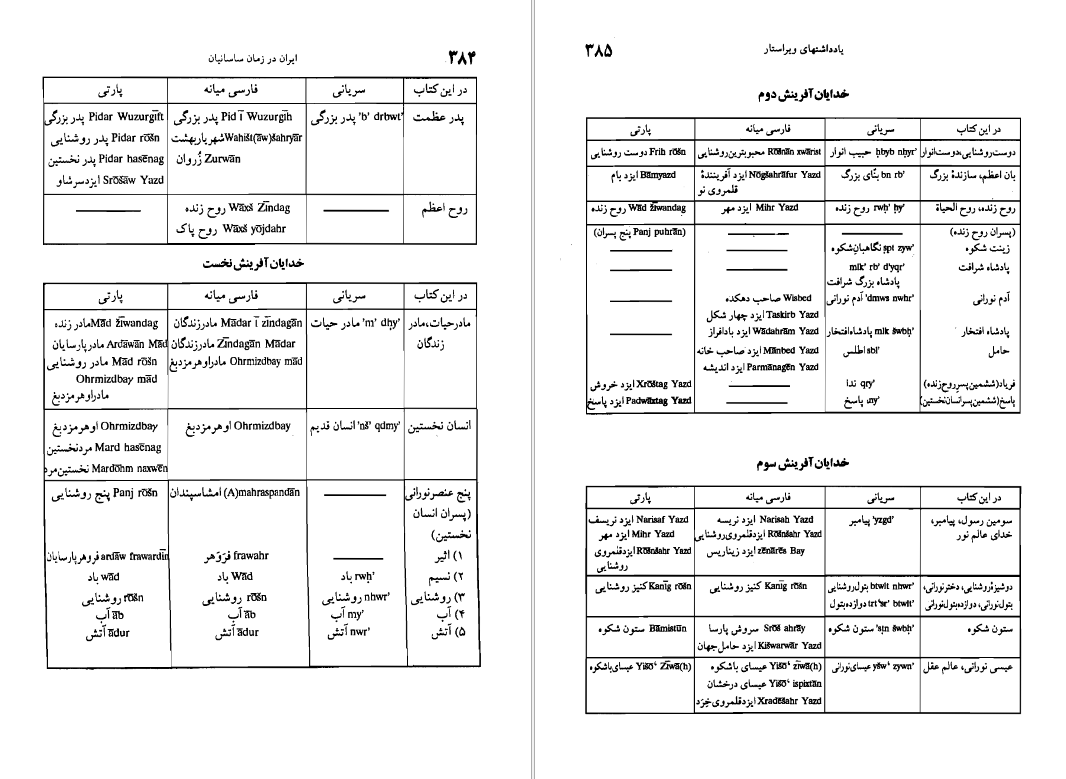 ایران در زمان ساسانیان ۳۸۴
در این کتاب | سریانی | فارسی میانه | پارتی
پدر عظمت | 'b' drbwt' پدر بزرگی | Pid ī Wuzurgīh پدر بزرگی | Pidar Wuzurgīft پدر بزرگی
Wahišt(āw)šahryār شهریاربهشت | Pidar rōšn پدر روشنایی
Zurwān زُروان | Pidar hasēnag پدر نخستین
Srōšāw Yazd ایزدسرشاو
روح اعظم | Wāxš Zīndag روح زنده
Wāxš yōjdahr روح پاک
خدایان آفرینش نخست
در این کتاب | سریانی | فارسی میانه | پارتی
مادرحیات،مادر | 'm' dḥy' مادر حیات | Mādar ī zīndagān مادرزندگان | Mād žīwandag مادر زنده
زندگان | Zīndagān Mādar مادرزندگان | Ardāwān Mād مادرپارسایان
Ohrmizdbay mād مادراوهرمزدبغ | Mād rōšn مادر روشنایی
Ohrmizdbay mād
مادراوهرمزدبغ
انسان نخستین | 'nš' qdmy' انسان قدیم | Ohrmizdbay اوهرمزدبغ | Ohrmizdbay اوهرمزدبغ
Mard hasēnag مردنخستین
Mardōhm naxwēn نخستین‌مرد
پنج عنصرنورانی | (A)mahraspandān امشاسپندان | Panj rōšn پنج روشنایی
(پسران انسان
نخستین)
۱) اثیر | frawahr فرَوَهر | ardāw frawardīn فروهرپارسایان
۲) نسیم | rwḥ' باد | Wād باد | wād باد
۳) روشنایی | nhwr' روشنایی | rōšn روشنایی | rōšn روشنایی
۴) آب | my' آب | āb آب | āb آب
۵) آتش | nwr' آتش | ādur آتش | ādur آتش
یادداشتهای ویراستار ۳۸۵
خدایان آفرینش دوم
در این کتاب | سریانی | فارسی میانه | پارتی
دوست‌روشنایی،دوست‌انوار | ḥbyb nhyr' حبیب انوار | Rōšnān xwārist محبوبترین‌روشنایی | Frih rōšn دوست روشنایی
بان اعظم، سازندهٔ بزرگ | bn rb' بنّای بزرگ | Nōgšahrāfur Yazd ایزد آفرینندهٔ | Bāmyazd ایزد بام
قلمروی نو
روح زنده، روح الحیاة | rwḥ' ḥy' روح زنده | Mihr Yazd ایزد مهر | Wād žīwandag روح زنده
(پسران روح زنده) | Panj puhrān) پنج پسران)
زینت شکوه | ṣpt zyw' نگاهبان‌شکوه
پادشاه شرافت | mlk' rb' d'yqr'
پادشاه بزرگ شرافت
آدم نورانی | 'dmws nwhr' آدم نورانی | Wisbed صاحب دهکده
Taskirb Yazd ایزد چهار شکل
پادشاه افتخار | mlk šwbḥ' پادشاه‌افتخار | Wādahrām Yazd ایزد بادافراز
حامل | sbl' اطلس | Mānbed Yazd ایزد صاحب خانه
Parmānagēn Yazd ایزد اندیشه
فریاد(ششمین‌پسرروح‌زنده) | qry' ندا | Xrōštag Yazd ایزد خروش
پاسخ(ششمین‌پسرانسان‌نخستین) | 'ny' پاسخ | Padwāxtag Yazd ایزد پاسخ
خدایان آفرینش سوم
در این کتاب | سریانی | فارسی میانه | پارتی
سومین رسول، پیامبر، | 'yzgd' پیامبر | Narisah Yazd ایزد نریسه | Narisaf Yazd ایزد نریسف
خدای عالم نور | Rōšnšahr Yazd ایزدقلمروی‌روشنایی | Mihr Yazd ایزد مهر
zēnārēs Bay ایزد زیناریس | Rōšnšahr Yazd ایزدقلمروی
روشنایی
دوشیزهٔ‌روشنایی، دخترنورانی، | btwlt nhwr' بتول‌روشنایی | Kanīg rōšn کنیز روشنایی | Kanīg rōšn کنیز روشنایی
بتول‌نورانی، دوازده‌بتول‌نورانی | trt'sr' btwlt' دوازده‌بتول
ستون شکوه | 'sṭn šwbḥ' ستون شکوه | Srōš ahrāy سروش پارسا | Bāmistūn ستون شکوه
Kišwarwār Yazd ایزد حامل‌جهان
عیسی نورانی، عالم عقل | yšw‘ zywn' عیسای‌نورانی | Yišō‘ zīwā(h) عیسای باشکوه | Yišō‘ Zīwā(h) عیسای‌باشکوه
Yišō‘ ispixtān عیسای درخشان
Xradēšahr Yazd ایزدقلمروی‌خِرَد